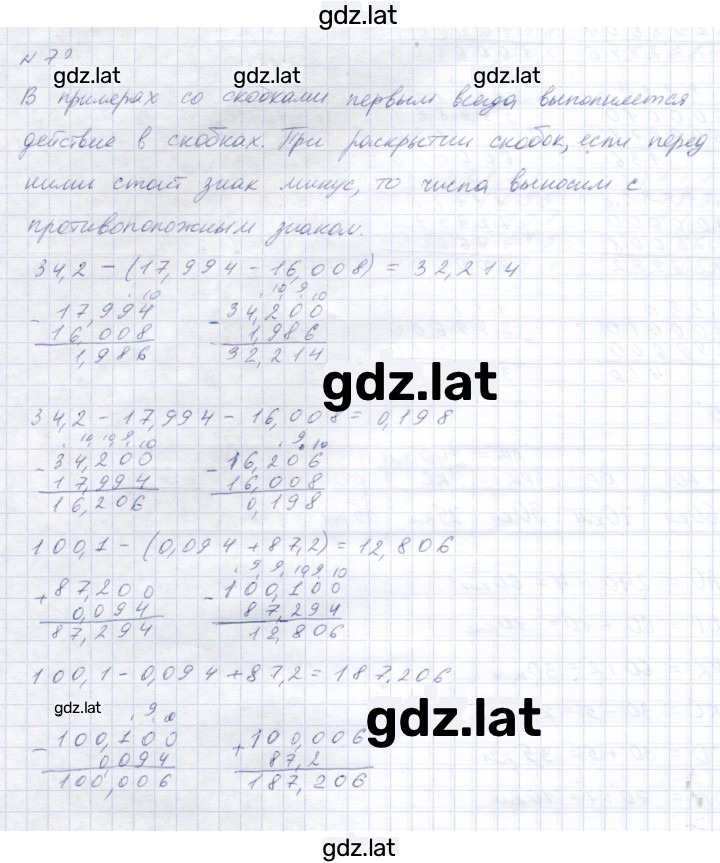 gdz.lat
N 79
gdz.lat gdz.lat gdz.lat
В примерах со скобками первым всегда выполняется
действие в скобках. При раскрытии скобок, если перед
ними стоит знак минус, то числа выносим с
противоположным знаком.
34,2 - (17,994 - 16,008) = 32,214
. 10 . 10 9 10
- 17,994 - 34,200
16,008 1,986
1,986 32,214
gdz.lat
34,2 - 17,994 - 16,008 = 0,198
. 10 10 9 10 . 9 10
- 34,200 - 16,206
17,994 16,008
16,206 0,198
100,1 - (0,094 + 87,2) = 12,806
. 9 9 10 9 10
+ 87,200 - 100,100
0,094 87,294
87,294 12,806
100,1 - 0,094 + 87,2 = 187,206
gdz.lat gdz.lat
. 9 10
- 100,100 + 100,006
0,094 87,2
100,006 187,206
gdz.lat